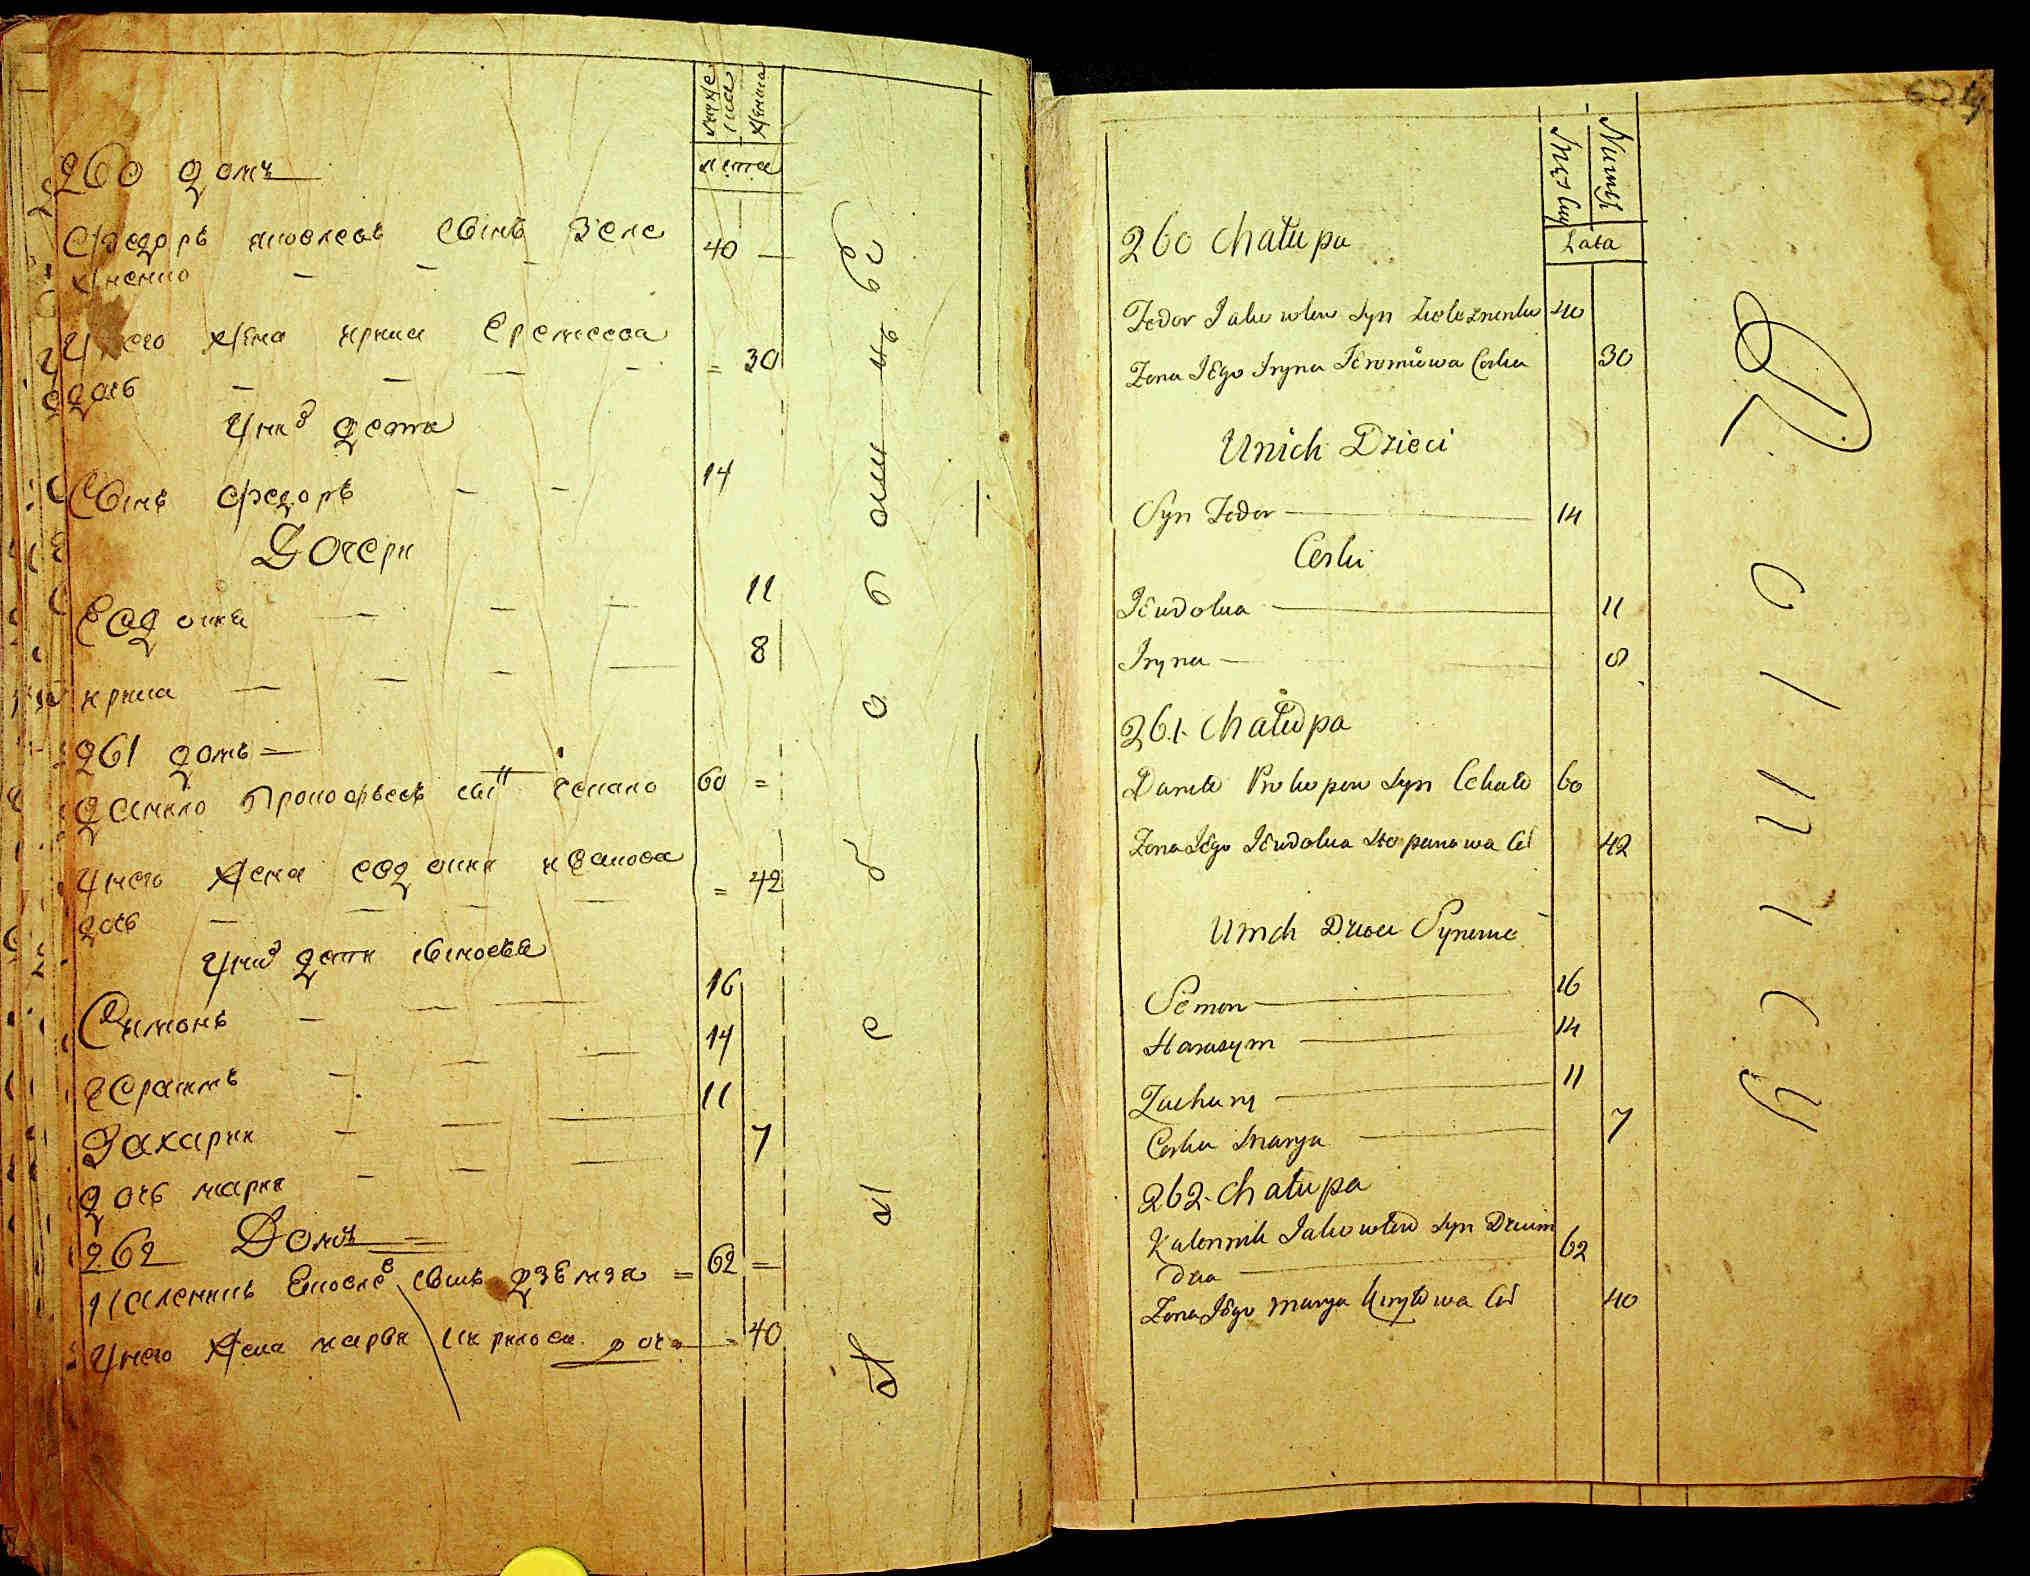 мужеска
женска
лета
260 домъ
Федоръ яковлевъ сынъ Зеле
жненко
40
У него жена ирина Еремеева
дочь
30
У них дети
Сынъ Федоръ 14
Дочери
Евдокия 11
ирина 8
261 домъ
Данило Прокофьевъ сын 60
У него жена евдокия иванова
дочь
42
У них дети сыновья
Симонъ 16
Герасимъ 14
Захарии 11
дочь мария 7
262 Домъ
62
У него жена мария кирилова дочь 40
Męzkey
Niewiey
Lata
260 Chałupa
Fedor Jakowlew Syn Zielezninko 40
Zona Iego Iryna Ieromiowa Corka 30
U nich Dzieci
Syn Fedor 14
Corki
Iewdokia 11
Iryna 8
261. Chałupa
Daniło Prokopow Syn 60
Zona Iego Iewdokia Stepanowa Cor 42
U nich Dzieci Synowie
Semon 16
Harasym 14
Zachary 11
Corka Marya 7
262. Chałupa
Kalennik Jakowlew Syn Dzium
dzia
62
Zona Iego Marya Kiryłowa Cor 40